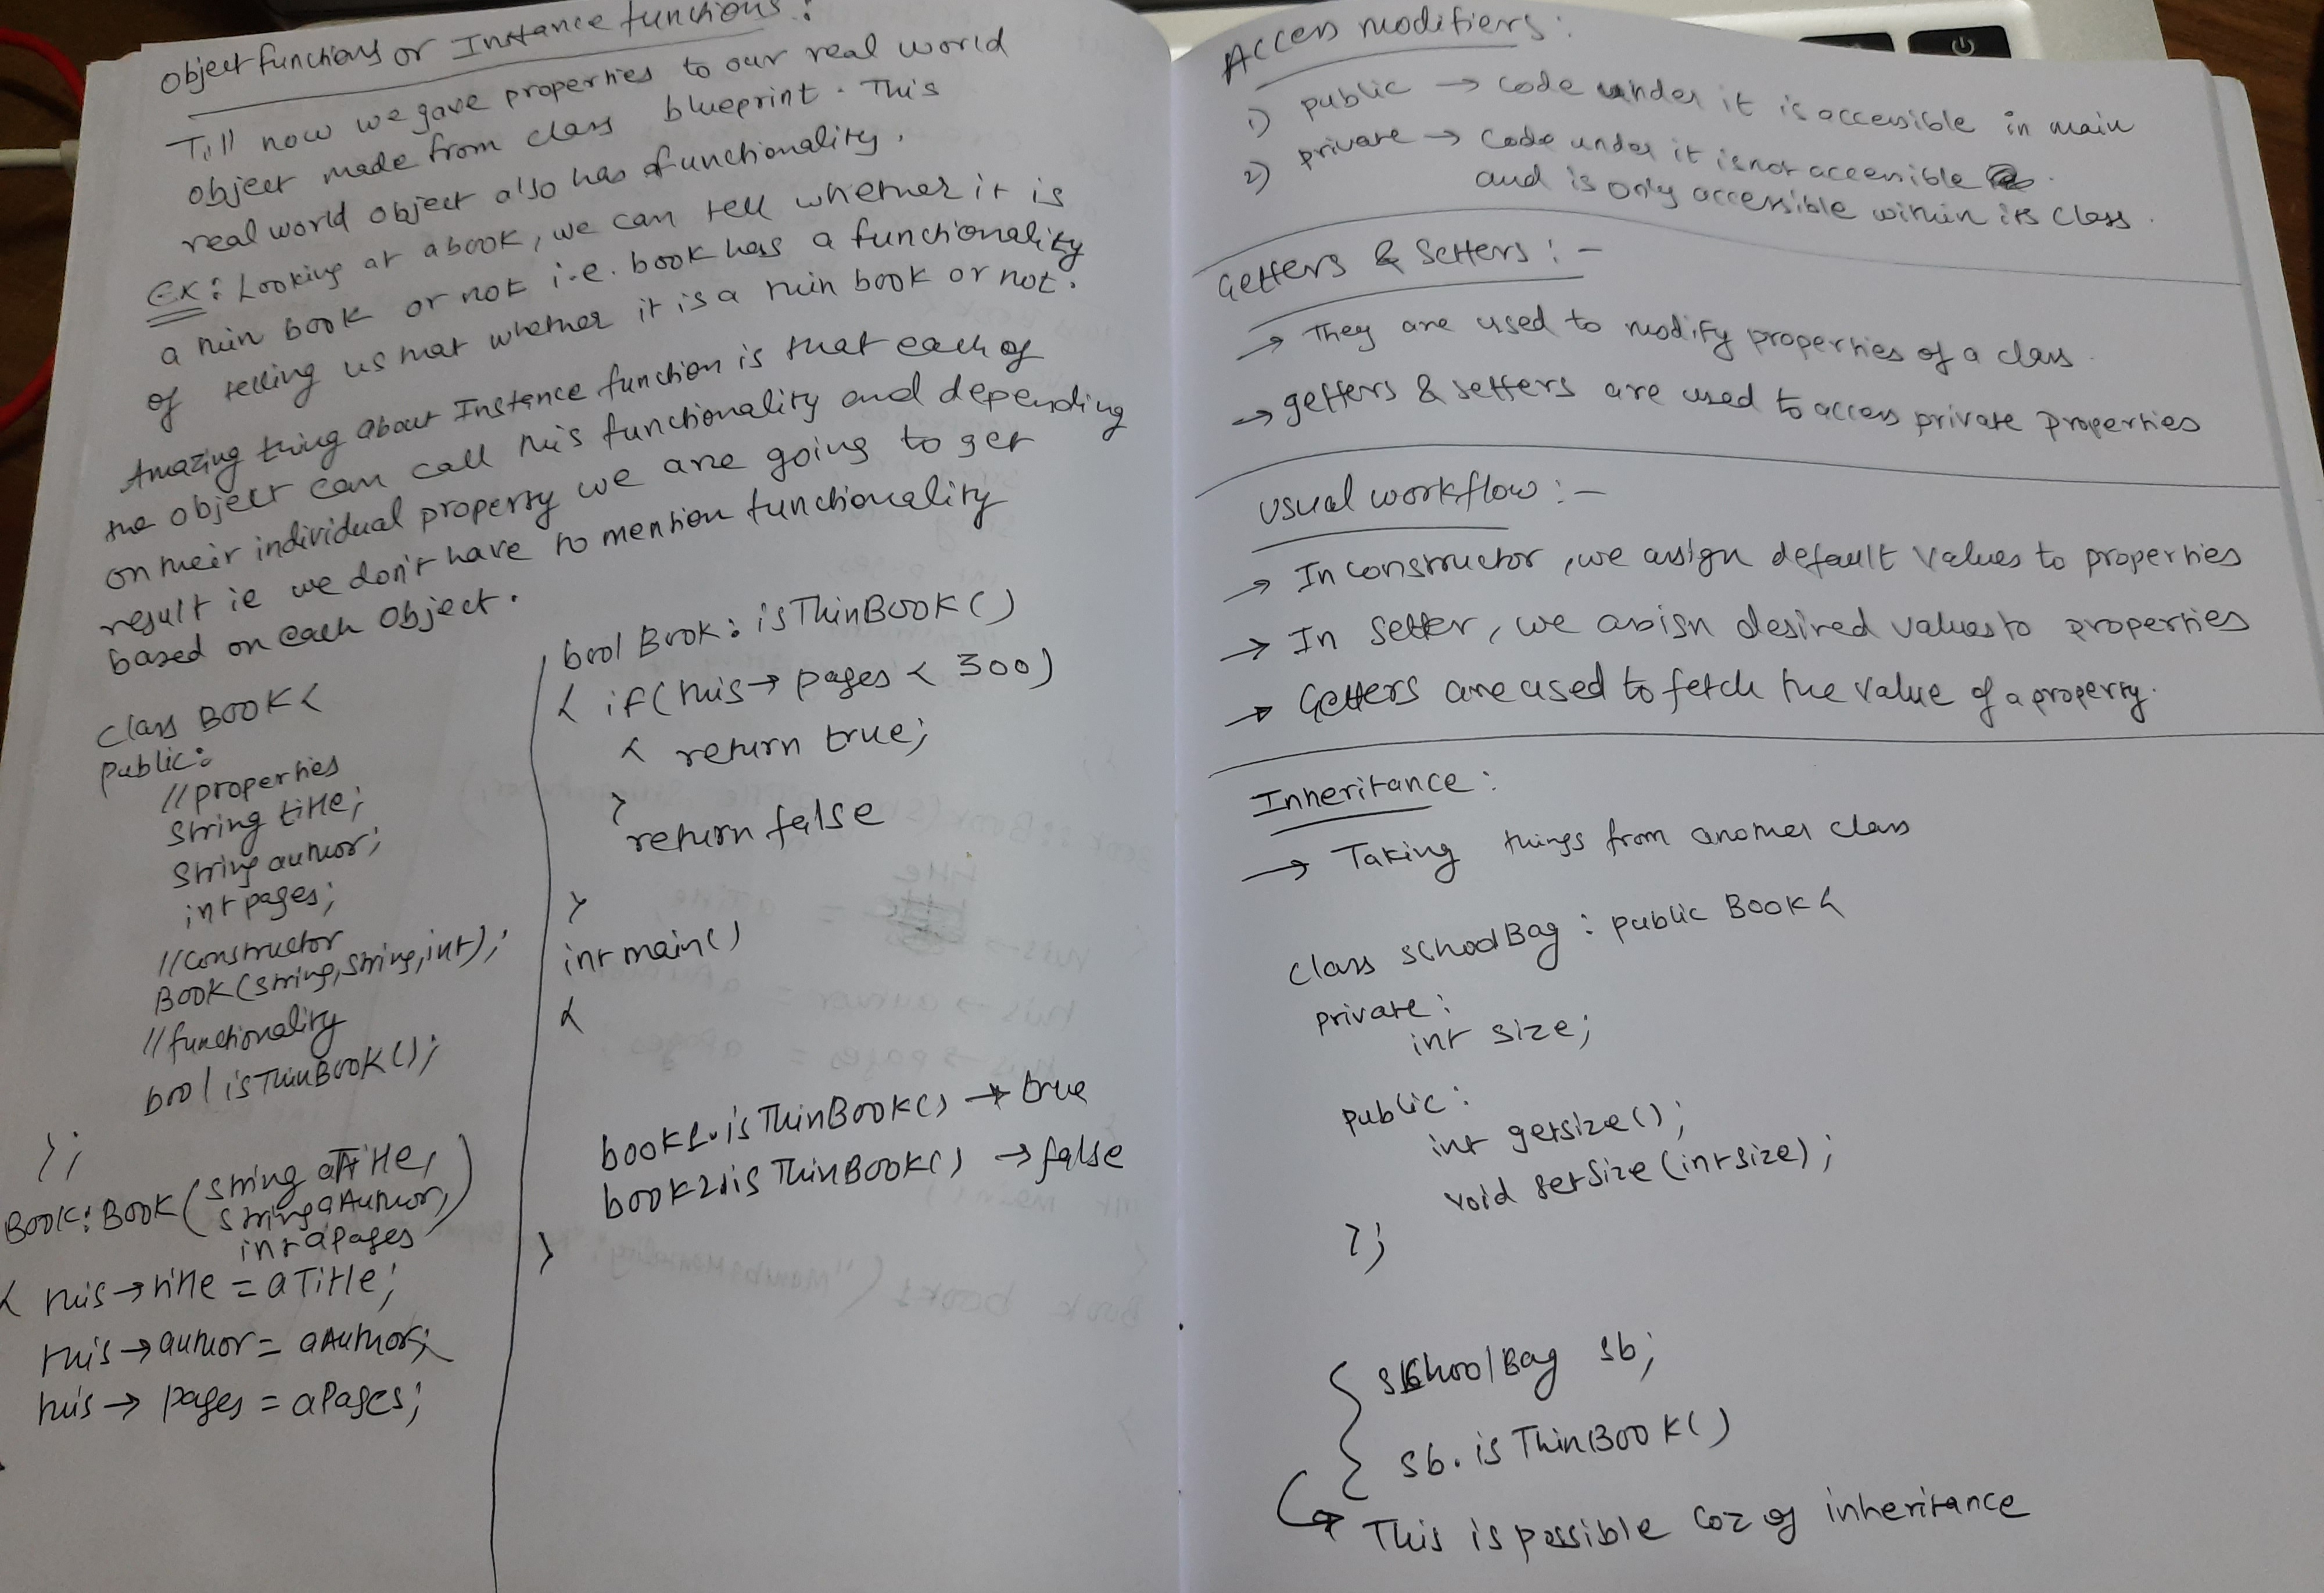 Object functions or Instance functions:
Till now we gave properties to our real world
object made from class blueprint. This
real world object also has functionality.
Ex: Looking at a book, we can tell whether it is
a thin book or not i.e. book has a functionality
of telling us that whether it is a thin book or not.
Amazing thing about Instance function is that each of
the object can call this functionality and depending
on their individual property we are going to get
result ie we don't have to mention functionality
based on each object.
class BOOK {
public:
//properties
String title;
String author;
int pages;
//constructor
BOOK(string, string, int);
//functionality
bool isThinBook();
};
BOOK: BOOK (string aTitle,
string aAuthor,
int apages)
{ this → title = aTitle;
this → author = aAuthor;
this → pages = aPages;
}
bool Book: isThinBOOK()
{ if(this → pages < 300)
{ return true;
}
return false
}
int main()
{
book1.isThinBook() → true
book2.isThinBook() → false
}
Access modifiers:
1) public → code under it is accessible in main
2) private → code under it is not accessible
and is only accessible within its class.
Getters & Setters: -
→ They are used to modify properties of a class.
→ getters & setters are used to access private properties
Usual workflow: -
→ In constructor, we assign default values to properties
→ In setter, we assign desired values to properties
→ Getters are used to fetch the value of a property.
Inheritance:
→ Taking things from another class
class schoolBag : public Book {
private:
int size;
public:
int getsize();
void setSize(int size);
};
schoolBag sb;
sb.isThinBook()
→ This is possible coz of inheritance